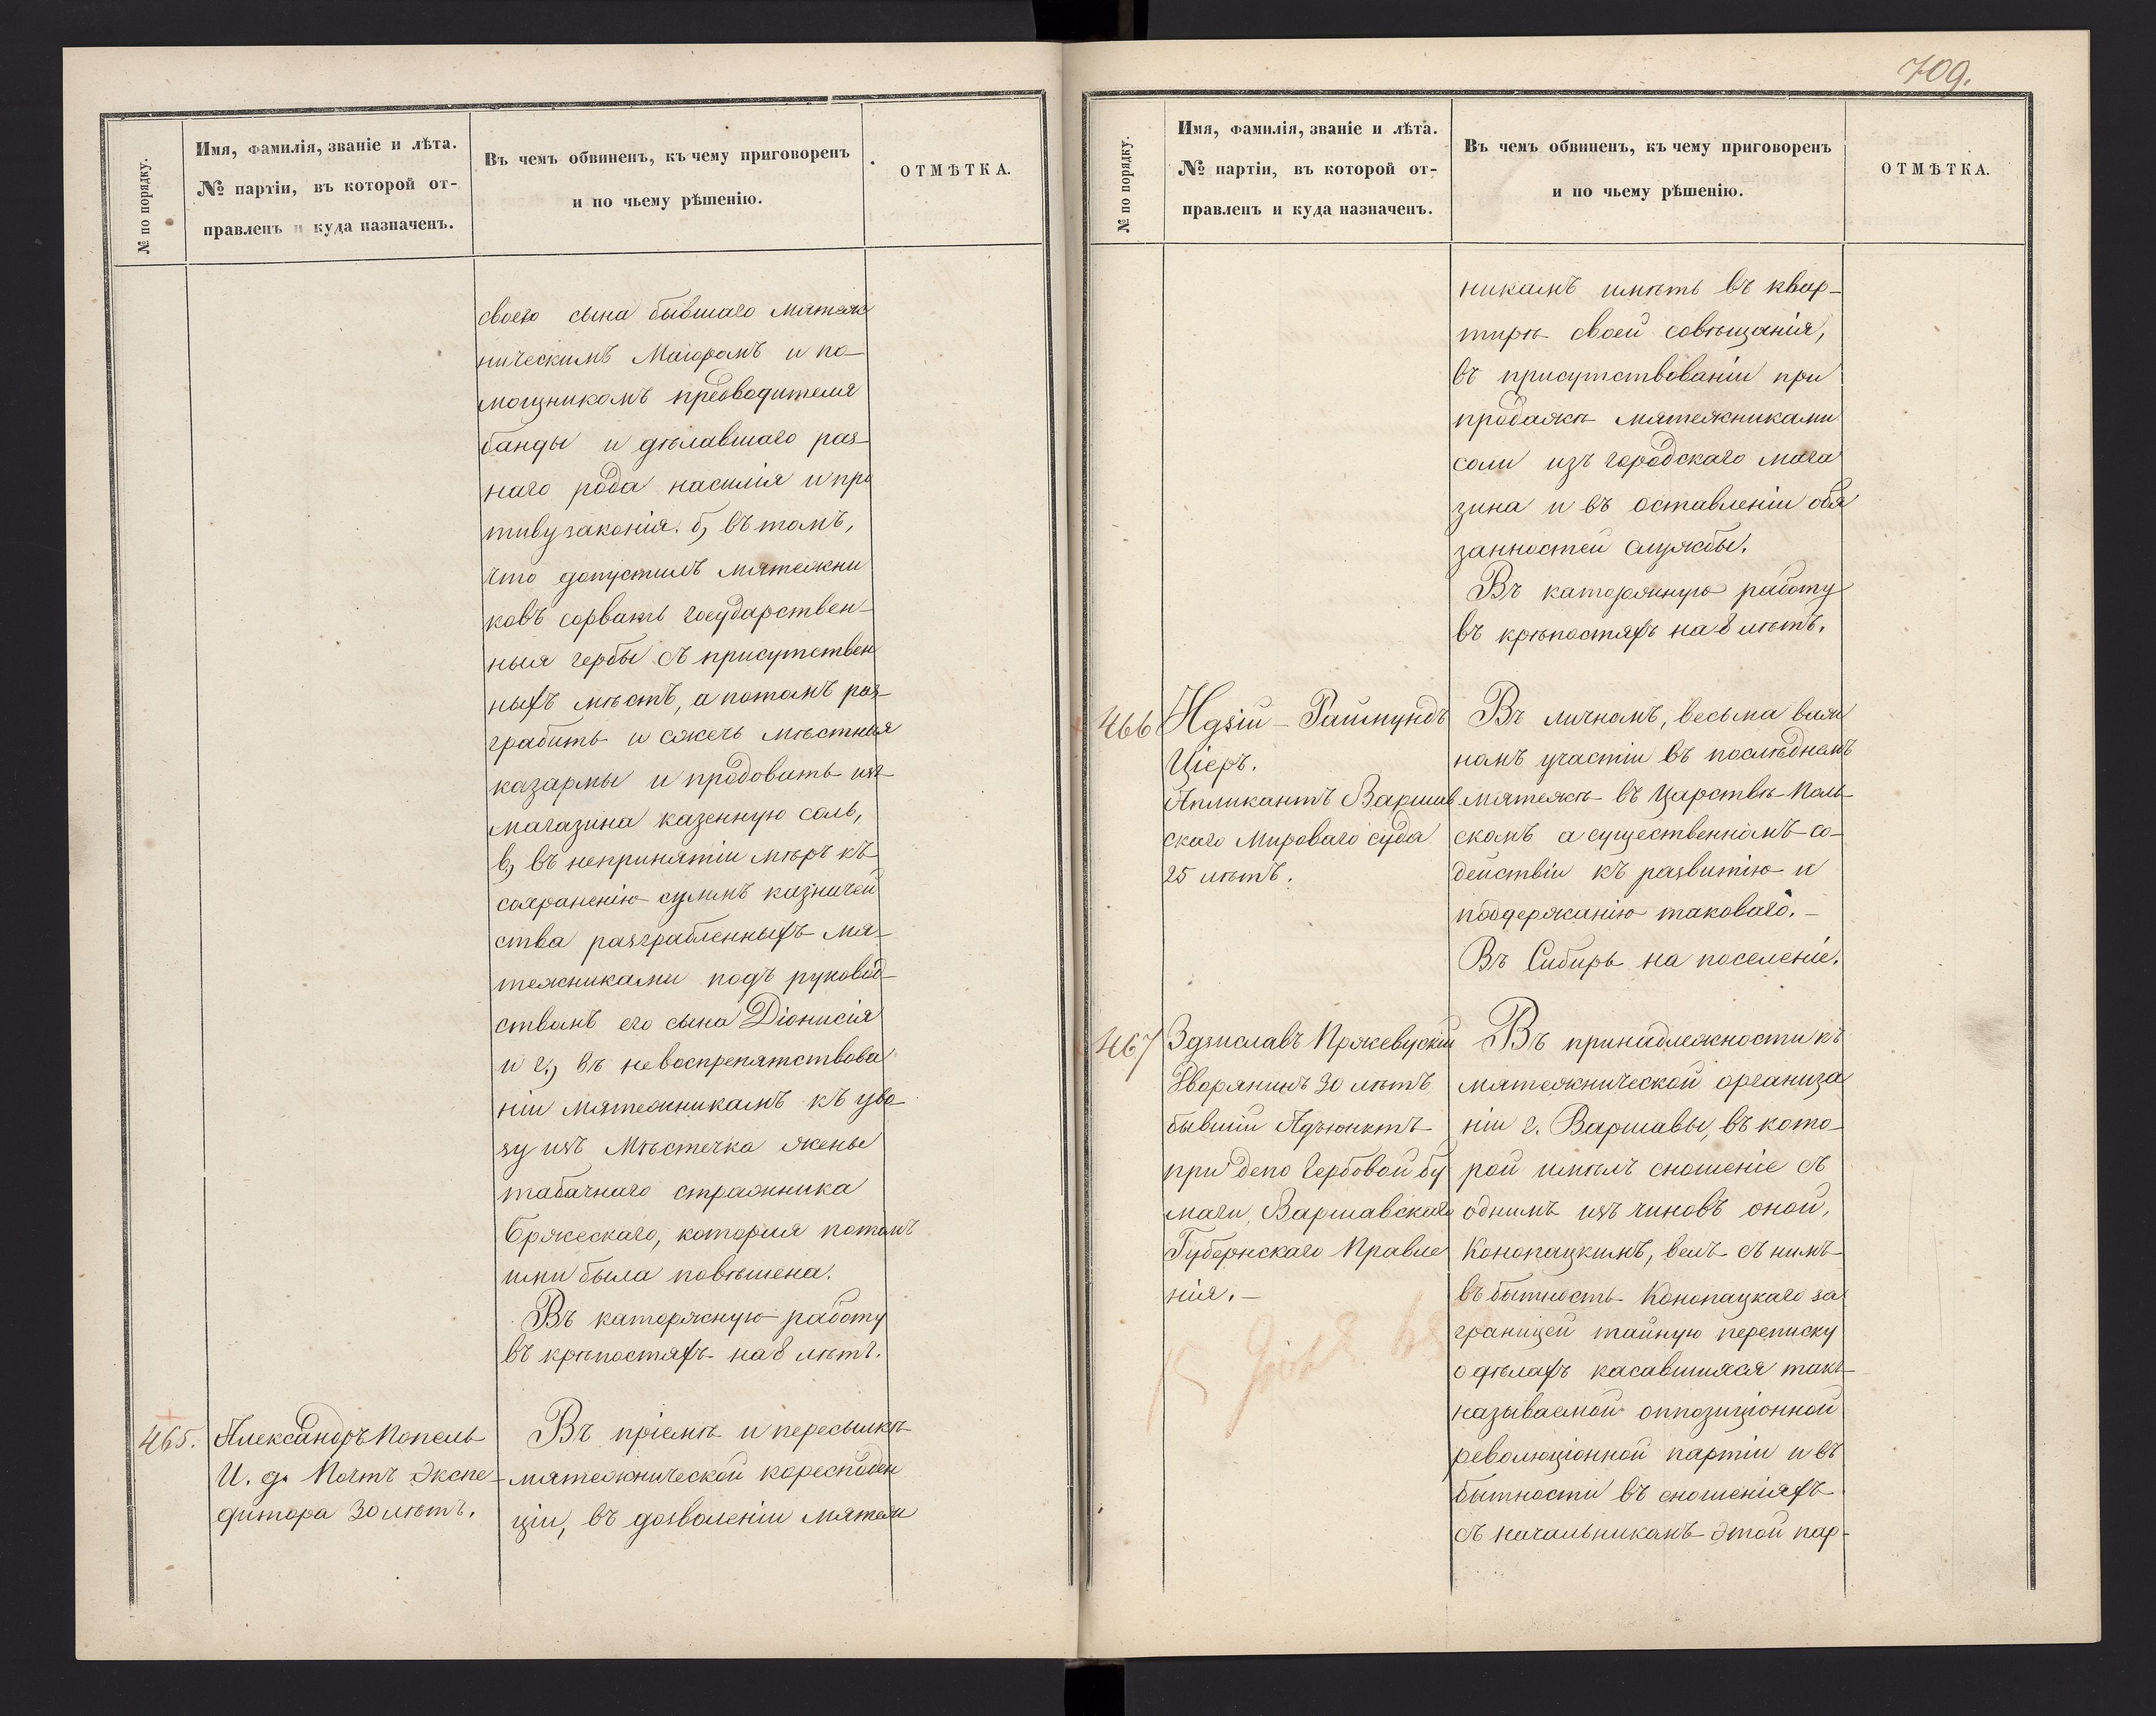 № по порядку.
Имя, фамилія, званіе и лѣта.
№ партіи, въ которой от-
правленъ и куда назначенъ.
Въ чемъ обвиненъ, къ чему приговоренъ
и по чьему рѣшенію.
ОТМѢТКА.
своего сына бывшаго мятеж
ническимъ Маіоромъ и по-
мощникомъ предводителя
банды и дѣлавшаго раз-
наго рода насилія и про
тивузаконія. б, въ томъ,
что допустилъ мятежни
ковъ сорвать государствен-
ныя гербы съ присутствен
ныхъ мѣстъ, а потомъ раз-
грабить и сжечь мѣстная
казармы и продовать изъ
магазина казенную соль,
в, въ непринятіи мѣръ къ
сохраненію суммъ казначей
ства разграбленныхъ мя-
тежниками подъ руковод-
ствомъ его сына Діонисія
и г., въ невоспрепятствова
ніи мятежникамъ къ уво
зу изъ Мѣстечка жены
табачнаго стражника
Бржескаго, которая потомъ
ими была повѣшена.
Въ каторжную работу
въ крѣпостяхъ на 8 лѣтъ.
465. Александръ Попель
И. д. Почтъ Экспе-
дитора 30 лѣтъ.
Въ пріемѣ и пересылкѣ
мятежнической кореспонден
ціи, въ дозволеніи мятеж
709.
№ по порядку.
Имя, фамилія, званіе и лѣта.
№ партіи, въ которой от-
правленъ и куда назначенъ.
Въ чемъ обвиненъ, къ чему приговоренъ
и по чьему рѣшенію.
ОТМѢТКА.
никамъ имѣть въ квар-
тирѣ своей совѣщанія,
въ присутствованіи при
продажѣ мятежниками
соли изъ городскаго мага
зина и въ оставленіи обя
занностей службы.
Въ каторжную работу
въ крѣпостяхъ на 8 лѣтъ.
466 Раймундъ
Ціеръ.
Апликантъ Варшав
скаго Мироваго суда
25 лѣтъ.
Въ личномъ, весьма важ
номъ участіи въ послѣднемъ
мятежѣ въ Царствѣ Поль-
скомъ а существенномъ со-
действіи къ развитію и
поддержанію таковаго. -
Въ Сибирь на поселеніе.
467 Здзиславъ Пржевускій
Дворянинъ 30 лѣтъ
бывшій Адъюнктъ
при депо Гербовой бу
маги, Варшавскаго
Губернскаго Правле
нія. -
Въ принадлежности къ
мятежнической организа
ніи г. Варшавы, въ кото-
рой имѣлъ сношеніе съ
однимъ изъ чиновъ оной,
Конопацкимъ, велъ съ нимъ
въ бытность Конопацкаго за
границей тайную переписку
о дѣлахъ касавшихся такъ-
называемой оппозиціонной
революціонной партіи и въ
бытности въ сношеніяхъ
съ начальникомъ этой пар-